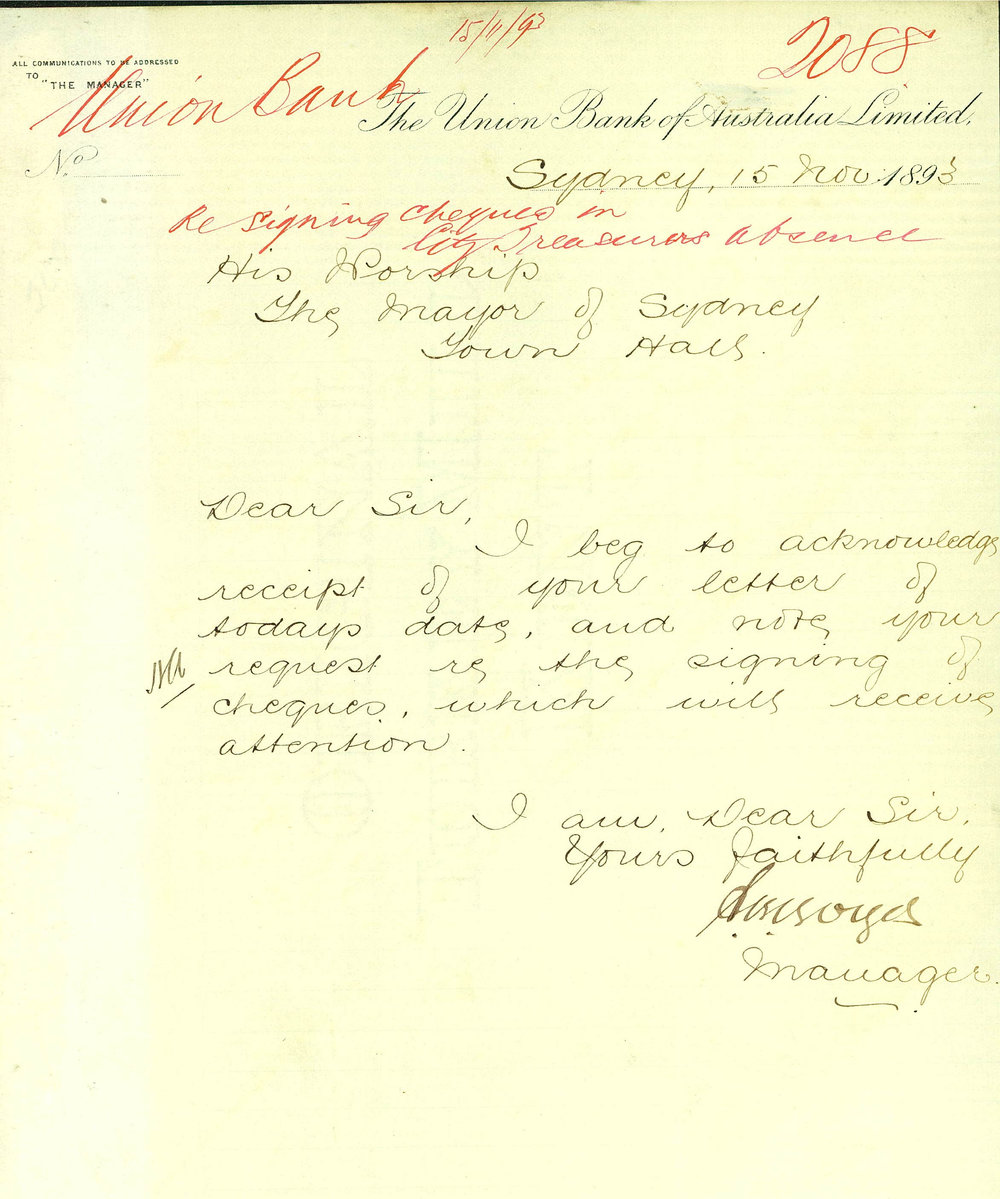 15/11/93
2088
ALL COMMUNICATIONS TO BE ADDRESSED
TO "THE MANAGER"
Union Bank
The Union Bank of Australia Limited.
No
Sydney, 15 Nov 1893
Re signing cheques in
City Treasurers absence
His Worship
The Mayor of Sydney
Town Hall.
Dear Sir,
I beg to acknowledge
receipt of your letter of
todays date, and note your
request re the signing of
cheques, which will receive
attention.
I am, Dear Sir,
Yours faithfully
Manager.